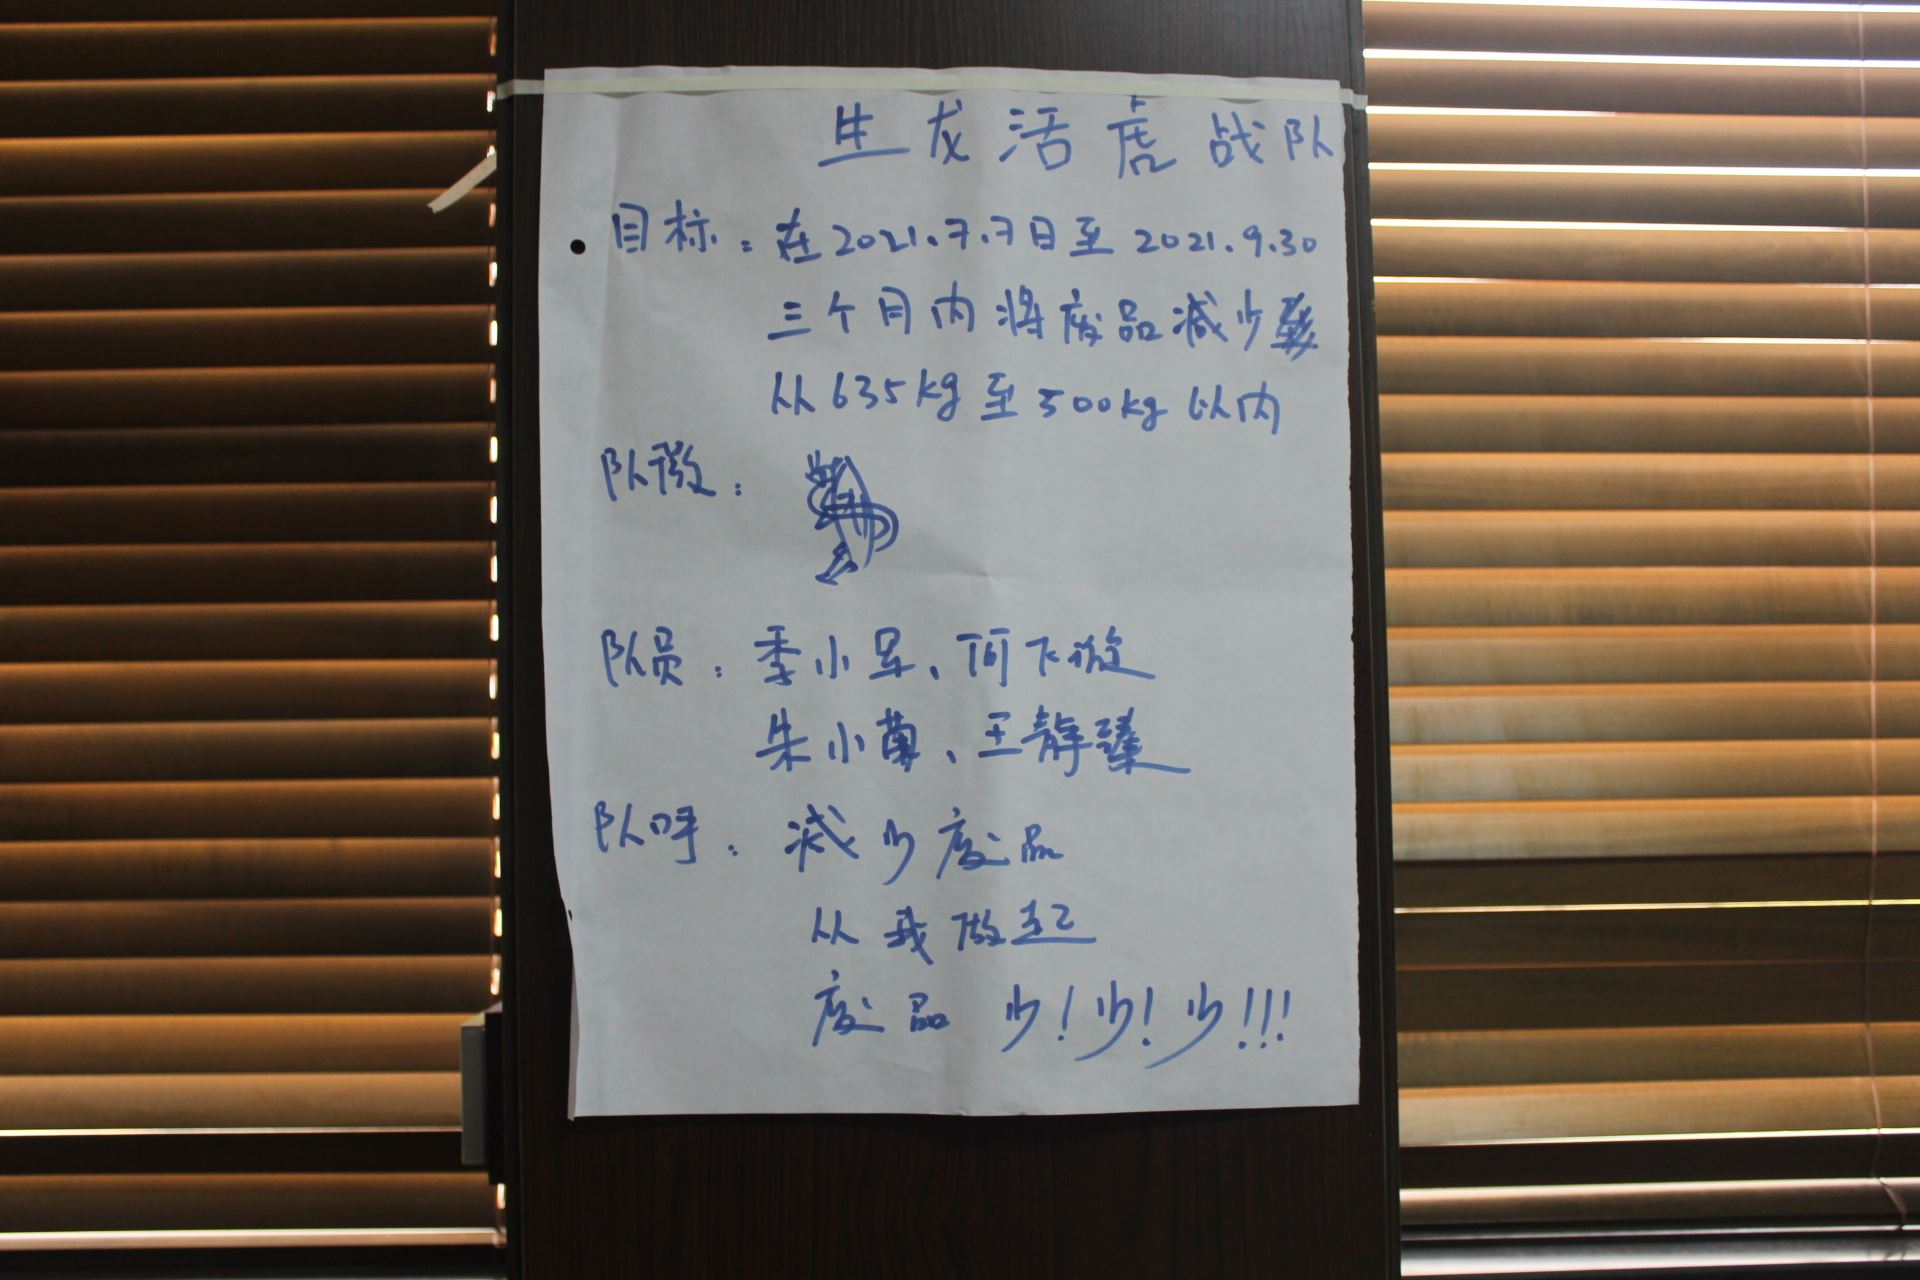 生龙活虎战队
目标：在2021.7.7日至2021.9.30
三个月内将废品减少
从635kg至500kg以内
队徽：
队员：季小军、何飞
朱小菊、王静臻
队呼：减少废品
从我做起
废品 少！少！少！！！